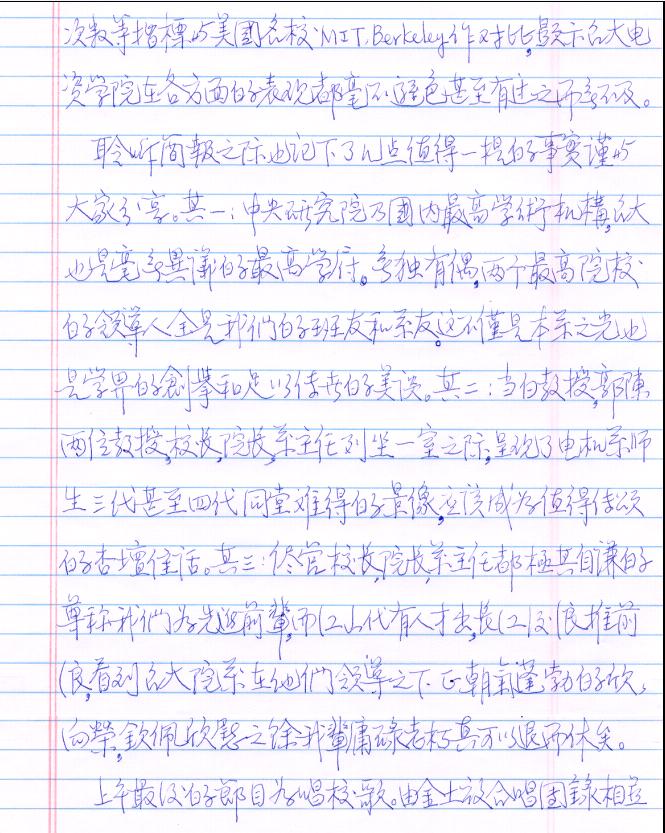 次数等指標与美國名校MIT,Berkeley作对比,顯示台大电
资学院在各方面的表现都毫不逊色,甚至有过之而無不及。
聆听简報之际也记下了几点值得一提的事實谨与
大家分享。其一:中央研究院乃國内最高學術机構,台大
也是毫無異議的最高学府。無独有偶,两个最高院校
的領導人全是我們的班友和系友。这不僅是本系之光也
是学界的創舉和足以传世的美谈。其二:当白教授,郭陳
两位教授,校長,院長,系主任列坐一室之际,呈现了电机系师
生三代甚至四代同堂难得的景像,应该成为值得传颂
的杏壇佳话。其三:侭管校長,院長,系主任都極其自谦的
尊称我們为先進前輩,而江山代有人才出,長江后浪推前
浪,看到台大院系在他們領導之下正朝氣蓬勃的欣
向榮,欽佩欣慰之餘我輩庸碌老朽其可以退而休矣。
上午最後的節目为唱校歌。由金土放合唱团錄相並